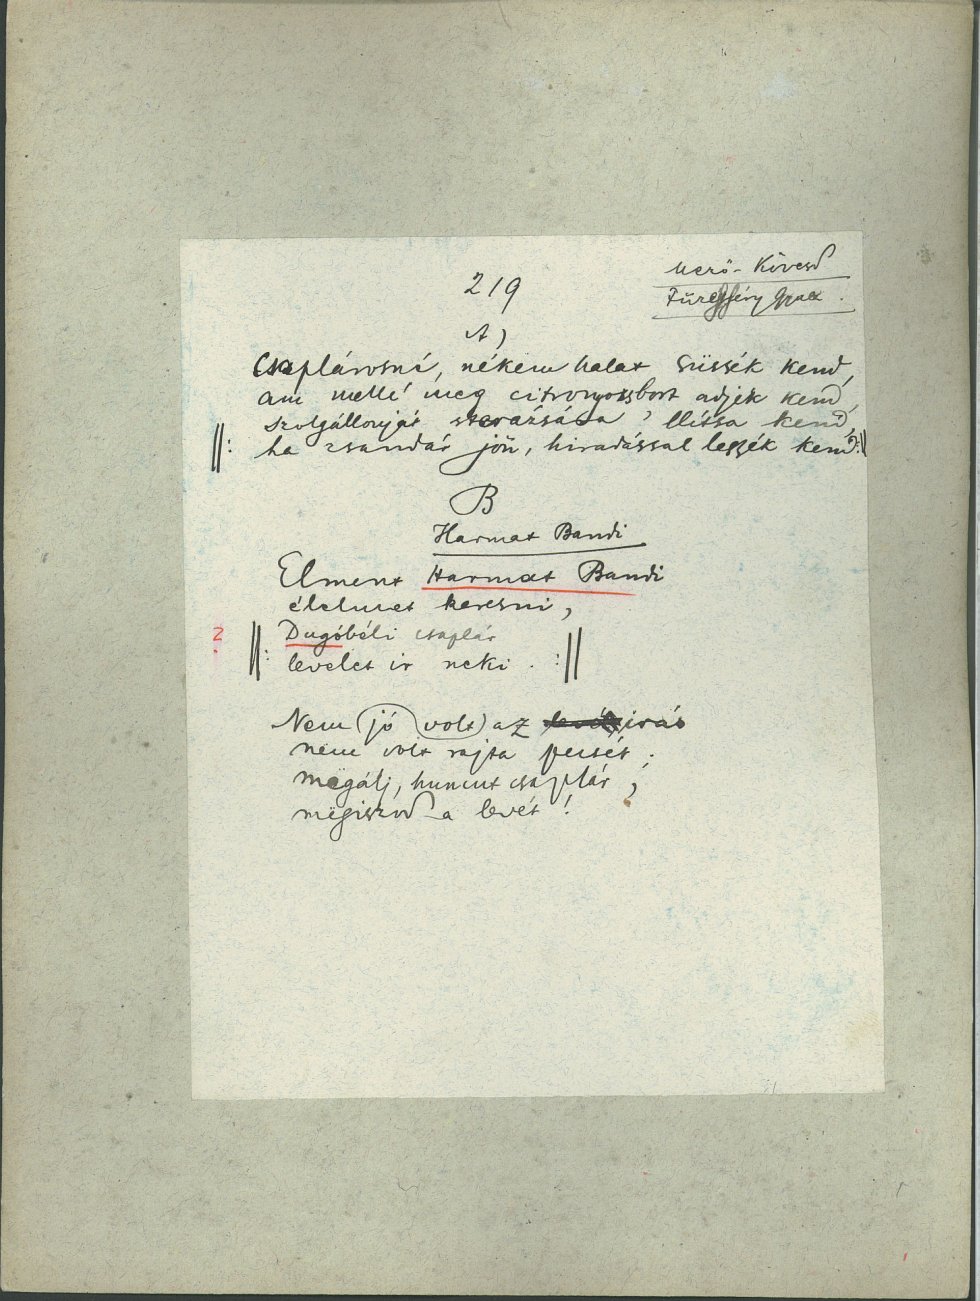 219
Mező-Kövesd
A)
Csaplárosné, nékem halat süssék kend,
am mellé meg citromossbort adjék kend,
szolgállouját strázsára állítsa kend,
||: ha zsandár jön, hiradással lessék kend :||
B
Harmat Bandi
Elment Harmat Bandi
élelmet keresni,
? ||: Dugóbéli csaplár
levelet ir neki. :||
Nem (jó volt) az levél irás
nem volt rajta pecsét;
mëgálj, huncut csaplár,
mëgiszod a levét!